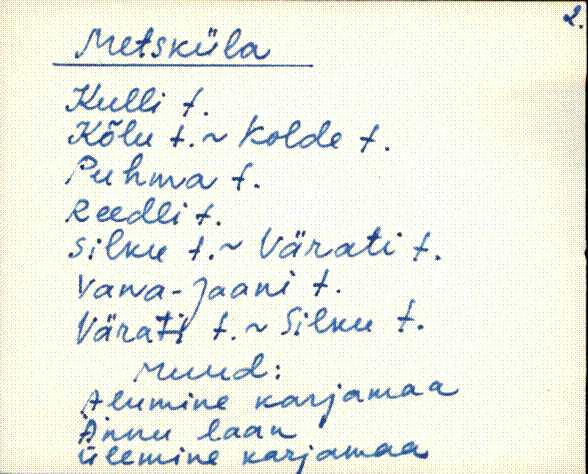 2.
Metsküla
Kulli t.
Kõlu t. ~ Kolde t.
Puhma t.
Reedli t.
Silku t. ~ Värati t.
Vana-Jaani t.
Värati t. ~ Silku t.
Muud:
Alumine karjamaa
Annu laan
Ülemine karjamaa